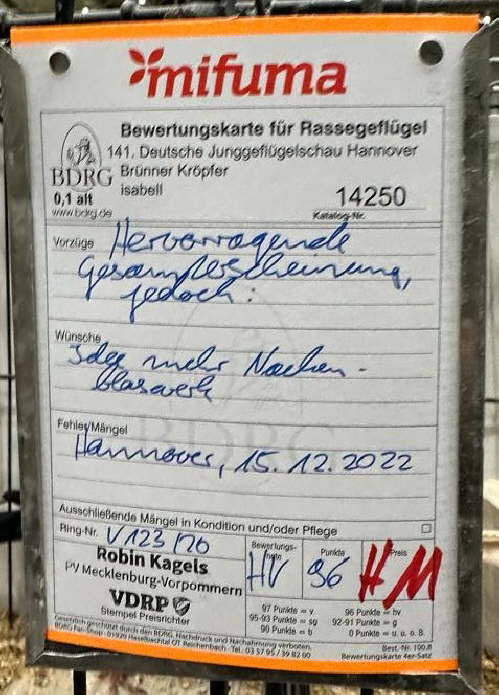 mifuma
Bewertungskarte für Rassegeflügel
141. Deutsche Junggeflügelschau Hannover
BDRG Brünner Kröpfer
0,1 alt isabell 14250
www.bdrg.de Katalog-Nr.
Vorzüge Hervorragende
Gesamterscheinung,
jedoch:
Wünsche
Idee mehr Nacken-
blaswerk
Fehler/Mängel
Hannover, 15.12.2022
BDRG
Ausschließende Mängel in Kondition und/oder Pflege
Ring-Nr. V123/20
Robin Kagels
PV Mecklenburg-Vorpommern
VDRP
Stempel Preisrichter
Bewertungs-
note Punkte Preis
HV 96 HM
97 Punkte = v 96 Punkte = hv
95-93 Punkte = sg 92-91 Punkte = g
90 Punkte = b 0 Punkte = u. o. o.B.
Gesetzlich geschützt durch den BDRG, Nachdruck und Nachahmung verboten.
Bewertungskarte 4er-Satz